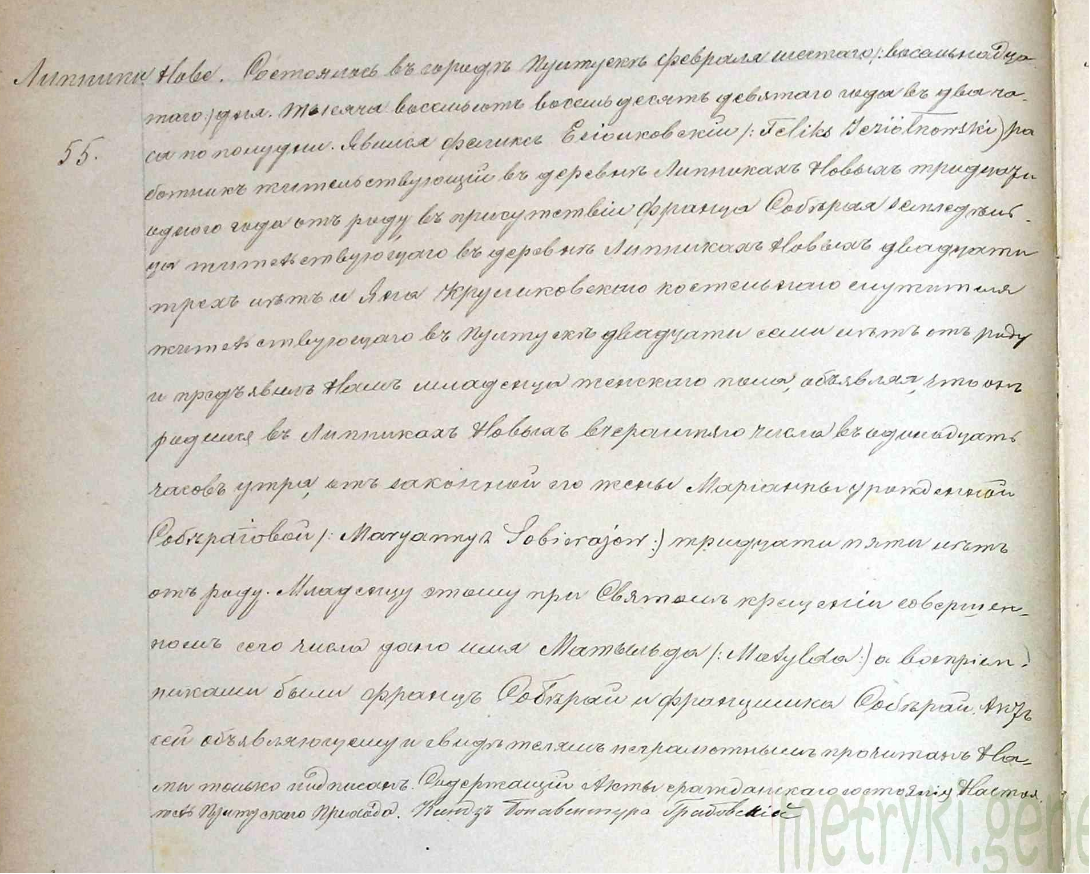 Липники Нове. Состоялось въ городѣ Пултускѣ февраля шестаго /: восемьнадца-
55.
таго:/ дня. Тысяча восемьсотъ восемьдесятъ девятаго года въ два ча-
са по полудни. Явился Феликсъ Езіолковскій /: Feliks Jeziółkowski) ра
ботникъ жительствующій въ деревнѣ Липникахъ Новыхъ тридцати
одного года отъ роду въ присутствіи Франца Собѣрая земледѣль-
ца жительствующаго въ деревнѣ Липникахъ Новыхъ двадцати
трехъ лѣтъ и Яна Круликовскаго костельнаго служителя
жительствующаго въ Пултускѣ двадцати семи лѣтъ отъ роду
и предъявилъ Намъ младенца женскаго пола, объявляя, что онъ
родился въ Липникахъ Новыхъ вчерашняго числа въ одинадцать
часовъ утра, отъ законной его жены Маріанны урожденной
Собѣраіовой /: Maryanny z Sobierajów:) тридцати пяти лѣтъ
отъ роду. Младенцу этому при Святомъ крещеніи совершен-
номъ сего числа дано имя Матыльда /: Matylda:) а воспріем-
никами были Францъ Собѣрай и Францишка Собѣрай. Актъ
сей объявляющему и свидѣтелямъ неграмотнымъ прочитанъ На-
ми только подписанъ. Содержащій Акты гражданскаго состоянія Настоя.
тель Пултускаго Прихода. Ксендзъ Бонавентура Грабовскій
metryki.gene